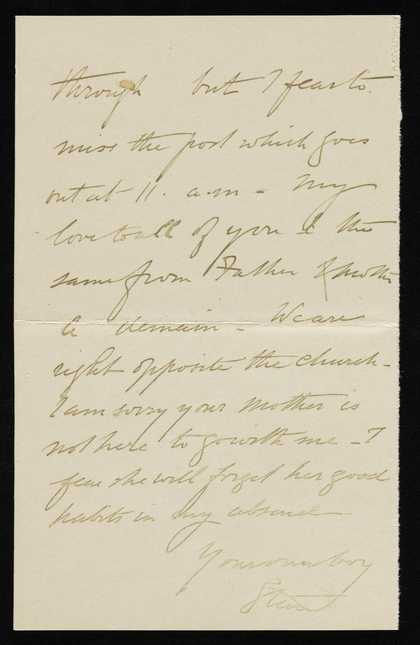 through but I fear to
miss the post which goes
out at 11. a.m - My
love to all of you & the
same from Father & Mother
A demain - We are
right opposite the church -
I am sorry your mother is
not here to go with me - I
fear she will forget her good
habits in my absence -
Your own boy